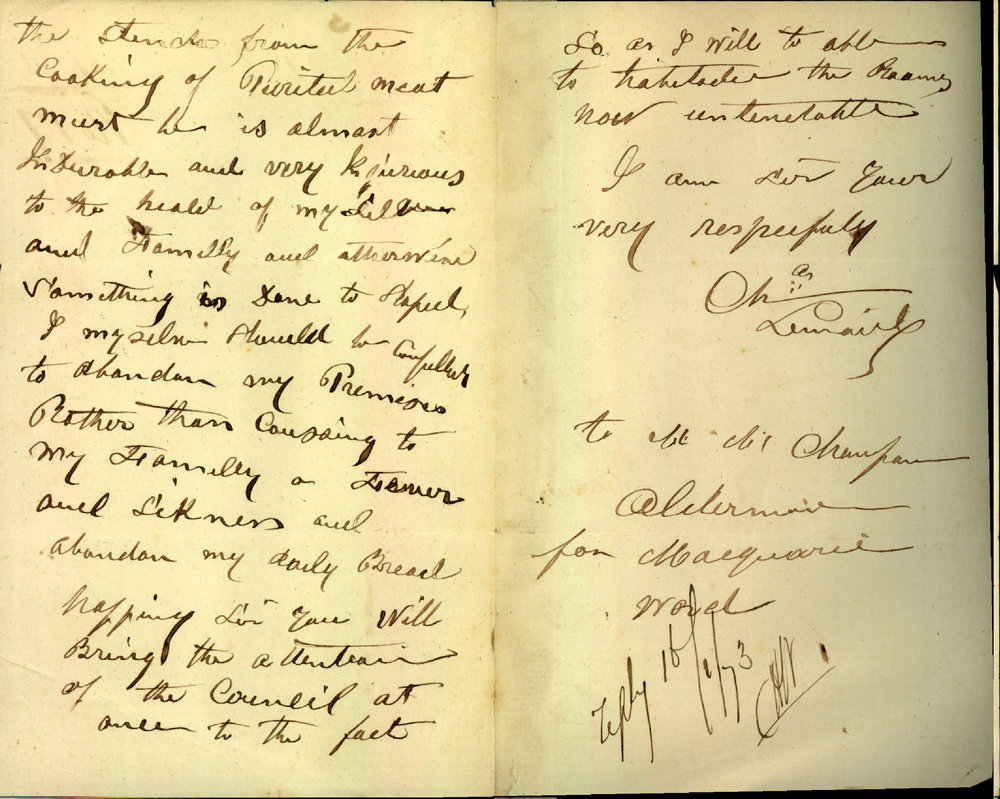 the stench from the
Cooking of Puritid meat
must be is almost
Indurable and very Injurious
to the heald of my Self
and Familly and otherwise
Something is Done to Stoped,
I myselvi Should be Compelled
to abandon my Premises
Rather than Caussing to
my Familly a Feaver
and Sikness and
abandon my daily Bread
hopping Sir You Will
Bring the attention
of the Council at
once to the fact
So as I will to able
to habitade the Raames
now untenetable
I am Sir Your
very respecfuly
Chas
Lemaire
to Mr Chanpan
Alderman
for Macquarie
Word
Reply 16/1/73